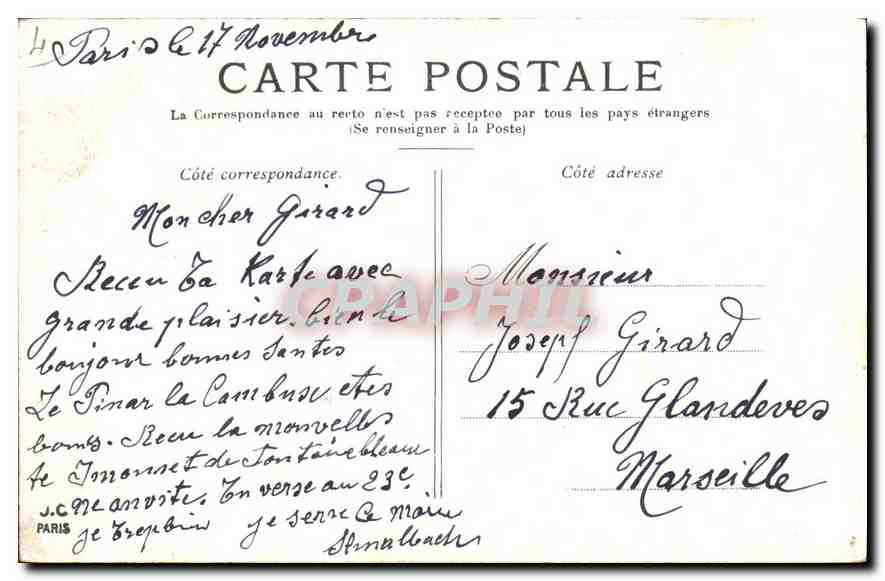 4
Paris le 17 Novembre
CARTE POSTALE
La Correspondance au recto n'est pas acceptee par tous les pays étrangers
(Se renseigner à la Poste)
Côté correspondance.
Côté adresse
Mon cher Girard
Recu Ta Karte avec
grande plaisier. bien le
boujour bonnes Santes
Le Pinar la Cambuse etes
bones. Recu la nouvelles
de Fontainebleau
Ne anvite. En verse au 23e.
je serre la Main
Monsieur
Joseph Girard
15 Rue Glandeves
Marseille
J.C
PARIS
CPAPHIL